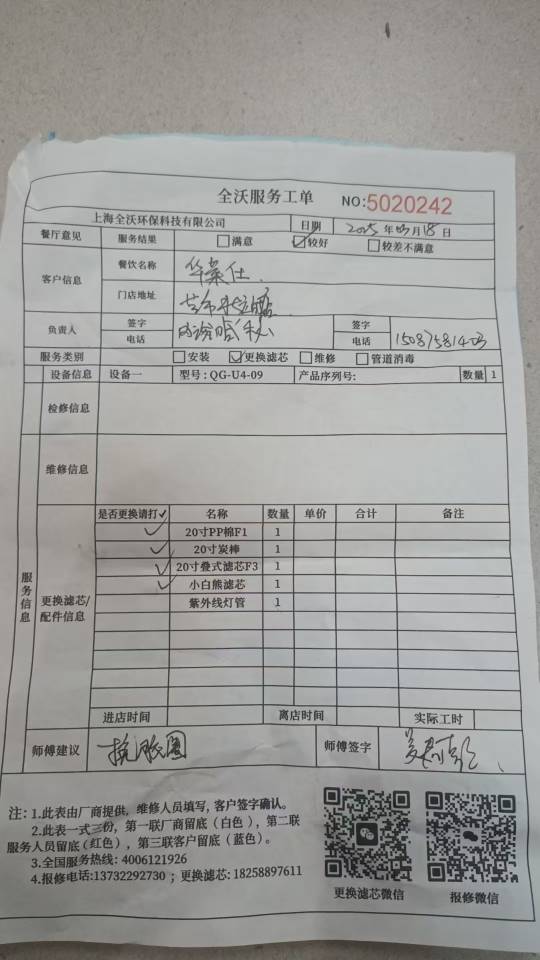 全沃服务工单 NO:5020242
上海全沃环保科技有限公司 日期 2025年03月18日
餐厅意见 服务结果 满意 较好 较差不满意
客户信息 餐饮名称 华莱仕
门店地址
负责人 签字 电话 签字 电话
服务类别 安装 更换滤芯 维修 管道消毒
设备信息 设备一 型号:QG-U4-09 产品序列号: 数量 1
检修信息
维修信息
服务信息
更换滤芯/配件信息
是否更换请打✓ 名称 数量 单价 合计 备注
✓ 20寸PP棉F1 1
✓ 20寸炭棒 1
✓ 20寸叠式滤芯F3 1
✓ 小白熊滤芯 1
紫外线灯管 1
进店时间 离店时间 实际工时
师傅建议 师傅签字
注:1.此表由厂商提供,维修人员填写,客户签字确认。
2.此表一式三份,第一联厂商留底(白色),第二联
服务人员留底(红色),第三联客户留底(蓝色)。
3.全国服务热线:4006121926
4.报修电话:13732292730;更换滤芯:18258897611
更换滤芯微信 报修微信